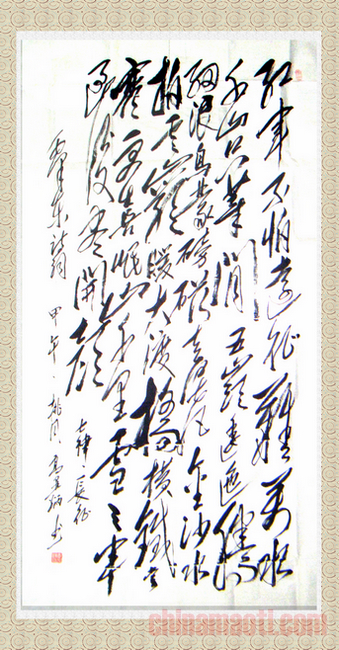 红军不怕远征難万水
千山只等闲五岭逶迤腾
细浪乌蒙磅礴走泥丸金沙水
拍云崖暖大渡桥横铁索
寒更喜岷山千里雪三军
过后尽開颜
七律·长征
毛泽东诗词 甲午·桃月 书
chinamaoti.com